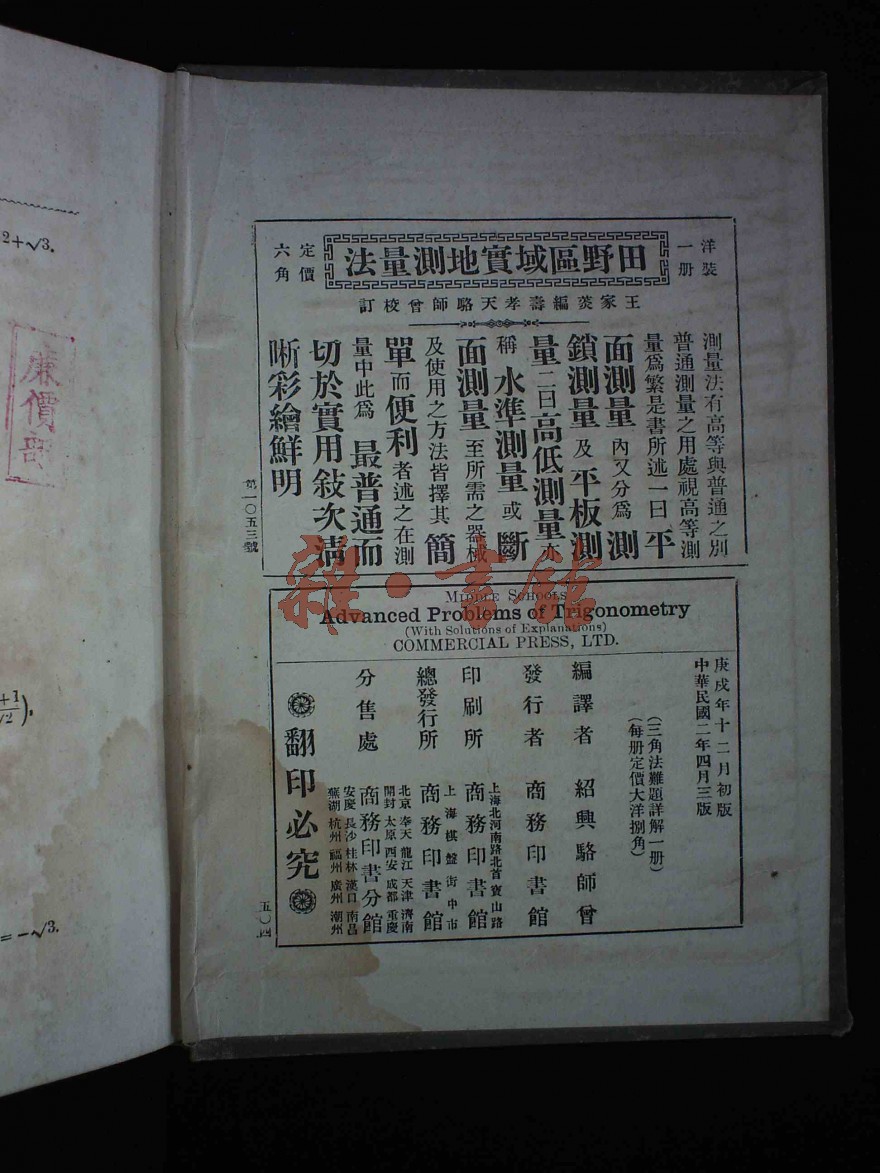 2+√3.
廉價部
+1
√2).
= −√3.
洋裝
一册
田野區域實地測量法
定價
六角
王家菼編壽孝天駱師曾校訂
測量法有高等與普通之別
普通測量之用處視高等測
量爲繁是書所述一曰平
面測量內又分爲測
鎖測量及平板測
量二曰高低測量亦
稱水準測量或斷
面測量至所需之器械
及使用之方法皆擇其簡
單而便利者述之在測
量中此爲最普通而
切於實用敍次淸
晰彩繪鮮明
第一〇五三號
雜·書館
MIDDLE SCHOOLS
Advanced Problems of Trigonometry
(With Solutions of Explanations)
COMMERCIAL PRESS, LTD.
庚戌年十二月初版
中華民國二年四月三版
(三角法難題詳解一册)
(每册定價大洋捌角)
編譯者 紹興駱師曾
發行者 商務印書館
上海北河南路北首寶山路
印刷所 商務印書館
上海棋盤街中市
總發行所 商務印書館
北京 奉天 龍江 天津 濟南
開封 太原 西安 成都 重慶
分售處 商務印書分館
安慶 長沙 桂林 漢口 南昌
蕪湖 杭州 福州 廣州 潮州
翻印必究
五〇四